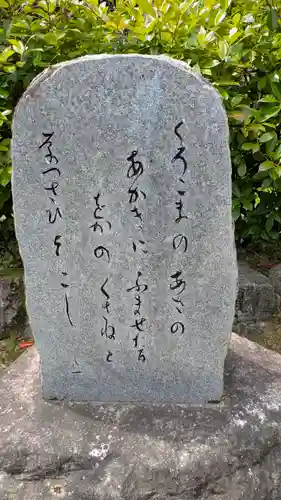 くろこまの あさの
あかきに ふませたる
をかの くさねと
なつさひ そ こし